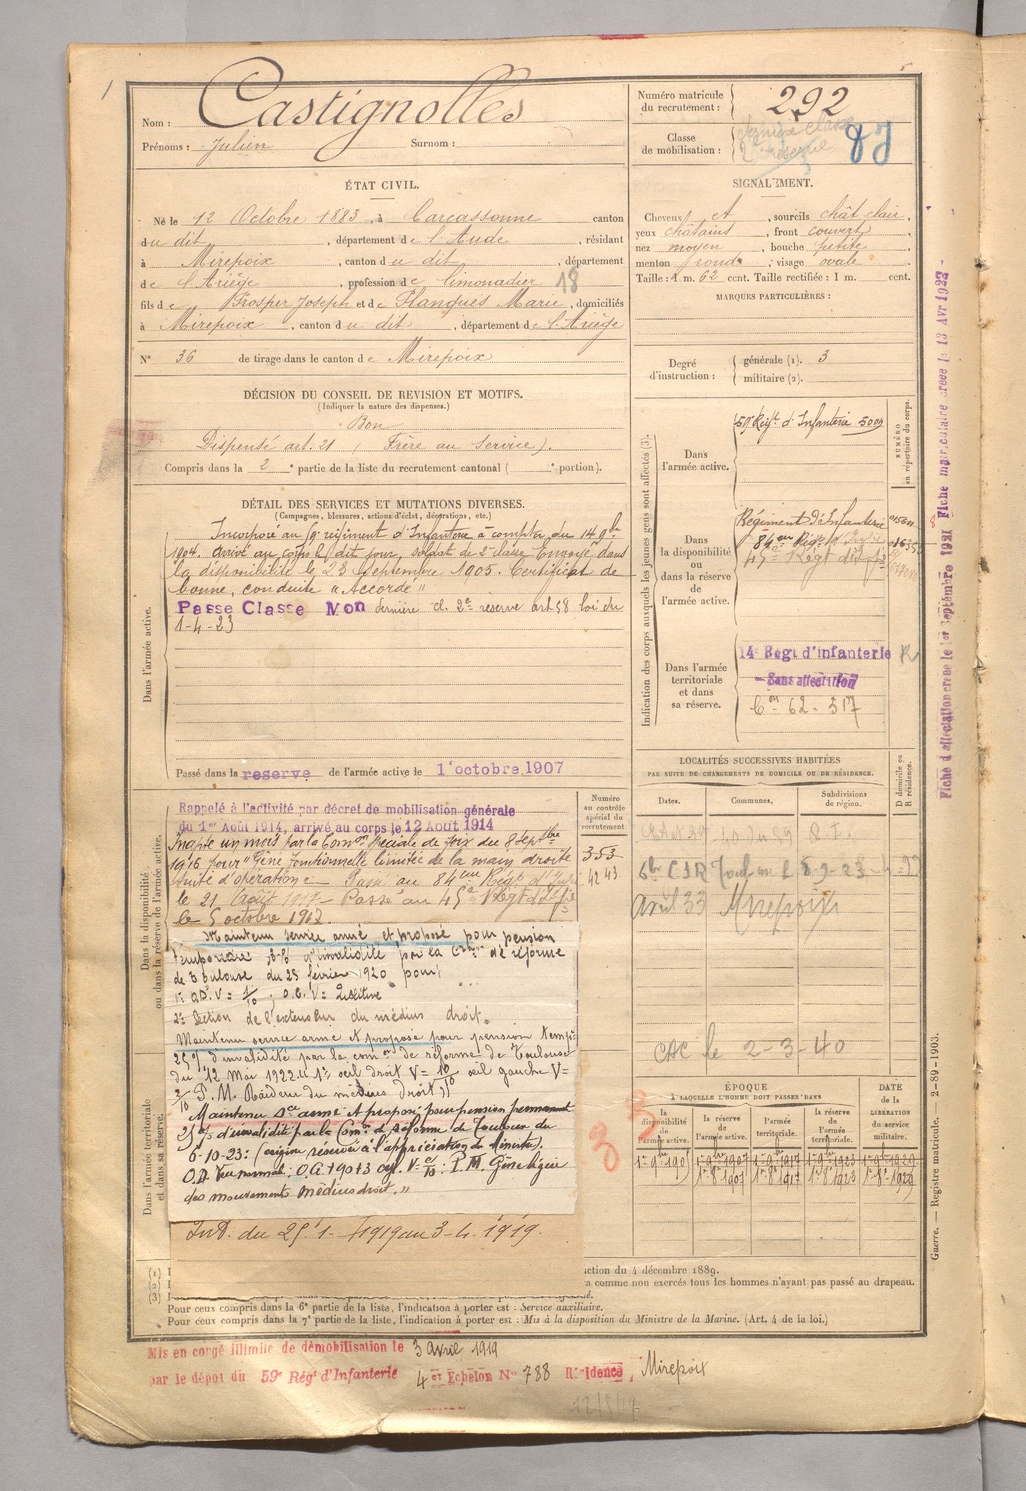 Nom : Castignolles
Prénoms : Julien Surnom :
Numéro matricule du recrutement : 292
Classe de mobilisation :
ÉTAT CIVIL.
Né le 12 Octobre 1883, à Carcassonne canton
du dit, département de l'Aude, résidant
à Mirepoix, canton du dit, département
de l'Ariège, profession de limonadier 18
fils de Prosper Joseph et de Planques Marie, domiciliés
à Mirepoix, canton du dit, département de l'Ariège
N° 36 de tirage dans le canton de Mirepoix
SIGNALEMENT.
Cheveux et, sourcils chât clair,
yeux châtains, front couvert,
nez moyen, bouche petite,
menton rond, visage ovale
Taille : 1 m. 62 cent. Taille rectifiée : 1 m. cent.
MARQUES PARTICULIÈRES :
Degré d'instruction : générale (1). 3
militaire (2).
DÉCISION DU CONSEIL DE REVISION ET MOTIFS.
(Indiquer la nature des dispenses.)
Bon
Dispensé art. 21 (Frère au Service).
Compris dans la 2e partie de la liste du recrutement cantonal ( e portion).
DÉTAIL DES SERVICES ET MUTATIONS DIVERSES.
(Campagnes, blessures, actions d'éclat, décorations, etc.)
Incorporé au 59e régiment d'Infanterie à compter du 14 9bre
1904. arrivé au corps le dit jour, soldat de 2e classe. Envoyé dans
la disponibilité le 23 Septembre 1905. Certificat de
bonne conduite "Accordé"
Passe Classe Mon dernière cl. 2e réserve art. 58 loi du
1-4-23
Dans l'armée active.
Passé dans la reserve de l'armée active le 1er octobre 1907
Indication des corps auxquels les jeunes gens sont affectés (3).
NUMÉRO au répertoire du corps.
Dans l'armée active.
59e Régt d'Infanterie 5009
Dans la disponibilité ou dans la réserve de l'armée active.
Régiment d'Infanterie
84eme Régt
45e Régt d'Ie
Dans l'armée territoriale et dans sa réserve.
14e Regt d'infanterie
Sans affectation
62 - 317
Fiche matriculaire créée le 13 Avr 1922
LOCALITÉS SUCCESSIVES HABITÉES
PAR SUITE DE CHANGEMENTS DE DOMICILE OU DE RÉSIDENCE.
Dates. Communes. Subdivisions de région. D domicile ou R résidence.
Avril 33 Mirepoix
CAC le 2-3-40
Dans la disponibilité ou dans la réserve de l'armée active.
Numéro au contrôle spécial du recrutement
353
42 43
Rappelé à l'activité par décret de mobilisation générale
du 1er Août 1914, arrivé au corps le 12 Août 1914
Inapte un mois par la Comon Spéciale de Foix du 8 Septbre
1916 pour "Gêne fonctionnelle limitée de la main droite
suite d'opération" Passé au 84eme Régt d'Infie
le 21 Août 1917 - Passé au 45e Régt d'Ie
le 5 octobre 1917.
Maintenu service armé et proposé pour pension
temporaire d'invalidité par la Comon de réforme
de Toulouse du 25 février 1920 pour :
2° Section de l'extenseur du médius droit.
Maintenu service armé et proposé pour pension temp.
25 % d'invalidité par la comon de réforme de Toulouse
du 12 Mai 1922 1° œil droit V = 10/10 œil gauche V =
P. M. Raideur du médius droit
Maintenu sce armé et proposé pour pension permanent
25 % d'invalidité par la Comon de réforme de Toulouse du
6-10-23 : (origine réservée à l'appréciation du Ministre).
P.M. Gêne légère
des mouvements médius droit."
Int. du 25.1-1919 au 3-4-1919.
Dans l'armée territoriale et dans sa réserve.
ÉPOQUE
À LAQUELLE L'HOMME DOIT PASSER DANS
la disponibilité de l'armée active. la réserve de l'armée active. l'armée territoriale. la réserve de l'armée territoriale. DATE de la LIBÉRATION du service militaire.
(1)
(2)
(3)
ction du 4 décembre 1889.
a comme non exercés tous les hommes n'ayant pas passé au drapeau.
Pour ceux compris dans la 6e partie de la liste, l'indication à porter est : Service auxiliaire.
Pour ceux compris dans la 7e partie de la liste, l'indication à porter est : Mis à la disposition du Ministre de la Marine. (Art. 4 de la loi.)
Guerre. — Registre matricule. — 2-89-1903.
Mis en congé illimité de démobilisation le 3 avril 1919
par le dépôt du 59e Régt d'Infanterie 4er Echelon No 788 Résidence, Mirepoix